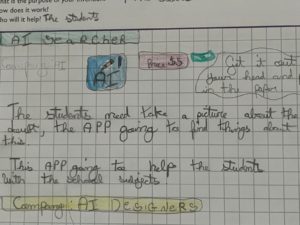 at is the purpose of your invention
ow does it work?
ho will it help? The students
AI SEARCHER
AI
Price: $$
Get it out
your head and put
in the paper
The students need take a picture about the
doubt, the APP going to find things about
this
This APP going to help the students
with the school subjects
Company: AI DESIGNERS